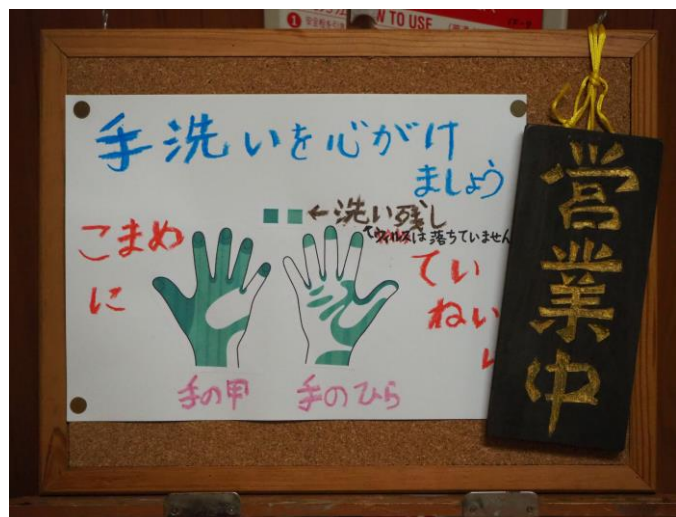 N TO USE
手洗いを心がけ
ましょう
←洗い残し
ウィルスは落ちていません
こまめ
に
てい
ねい
手の甲
手のひら
営業中